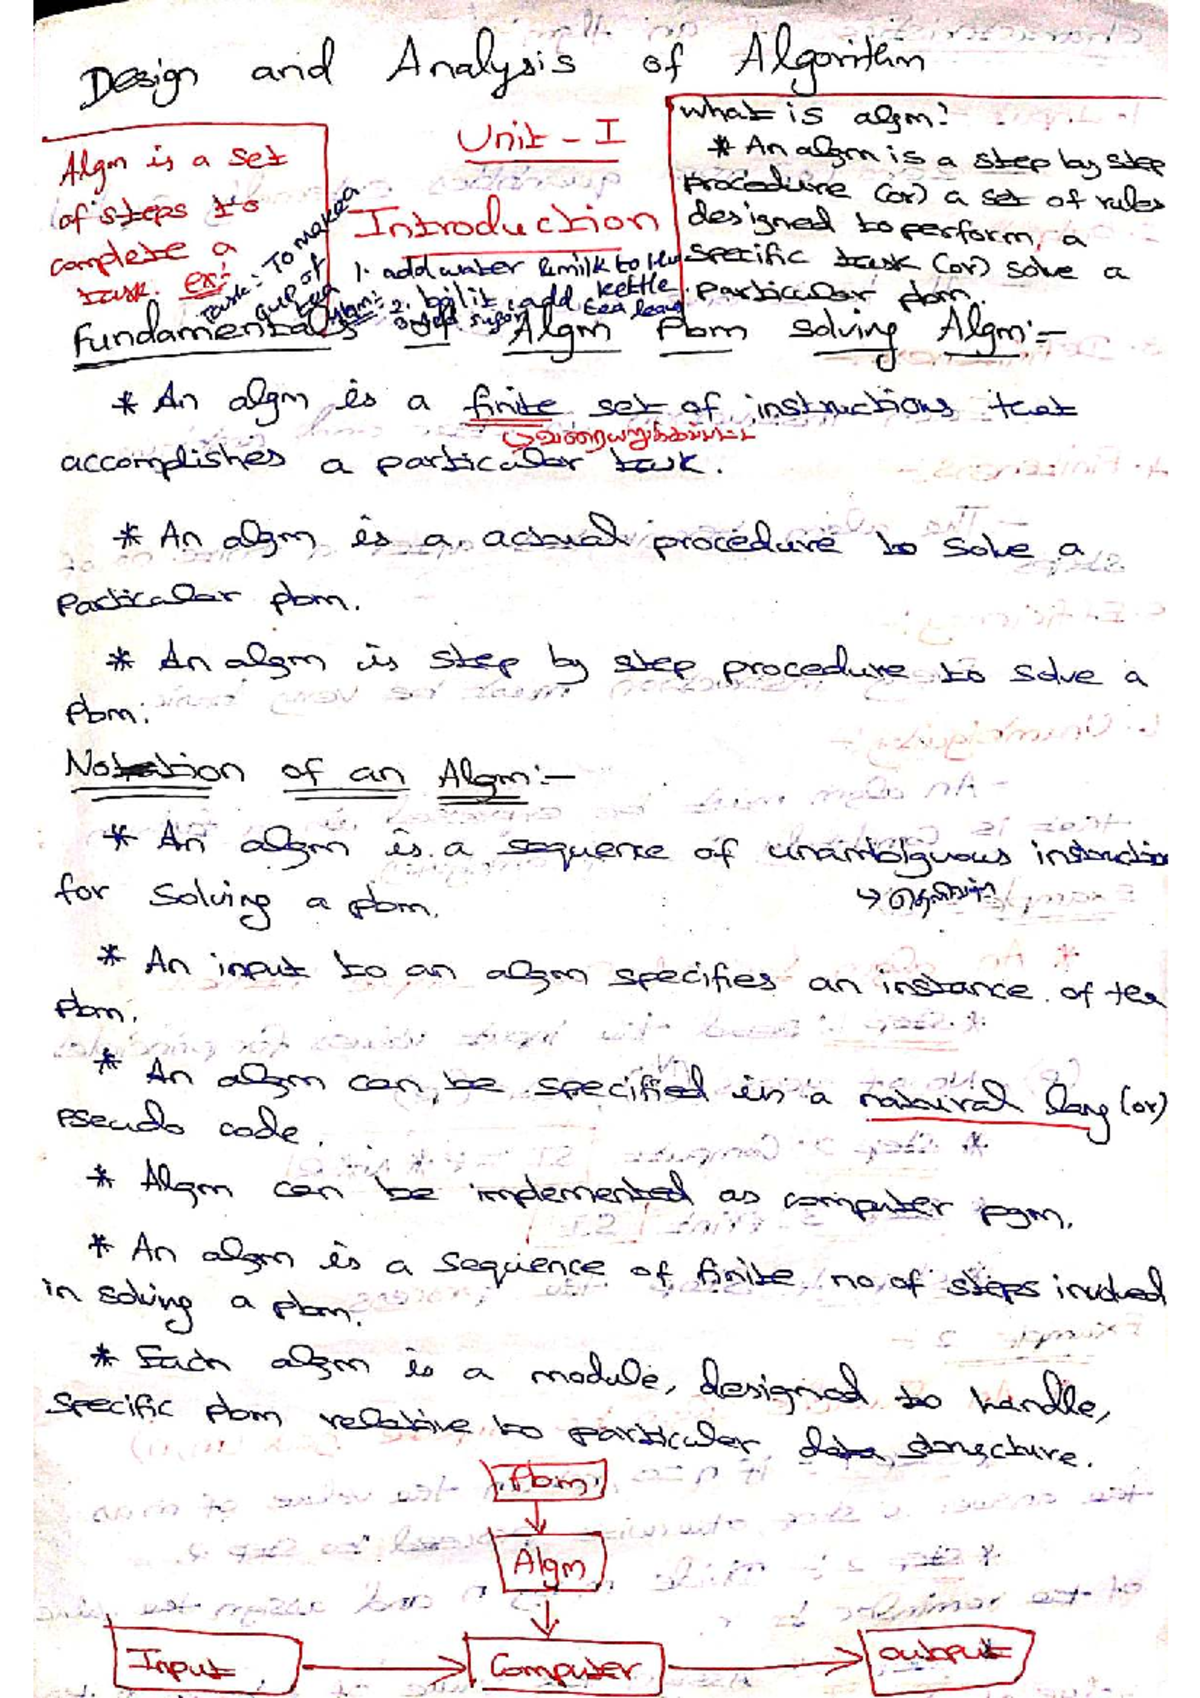 Design and Analysis of Algorithm
Unit - I
Introduction
Algm is a set
of steps to
complete a
task. ex:-
Task: To make a
cup of
tea
Algm:
1. add water & milk to the
kettle.
2. boil it, add tea leaves
3. Add sugar
What is algm?
* An algm is a step by step
procedure (or) a set of rules
designed to perform, a
specific task (or) solve a
particular pbm.
Fundamentals of Algm Pbm solving Algm:-
* An algm is a finite set of instructions that
வரையறுக்கப்பட்ட
accomplishes a particular task.
* An algm is a actual procedure to solve a
Particular pbm.
* An algm is step by step procedure to solve a
Pbm.
Notation of an Algm:-
* An algm is a sequence of unambiguous instruction
for solving a pbm.
* An input to an algm specifies an instance of the
Pbm.
* An algm can be specified in a natural lang (or)
Pseudo code.
* Algm can be implemented as computer pgm.
* An algm is a sequence of finite no of steps involved
in solving a pbm.
* Each algm is a module, designed to handle,
specific pbm relative to particular data structure.
Pbm
Algm
Input
Computer
output